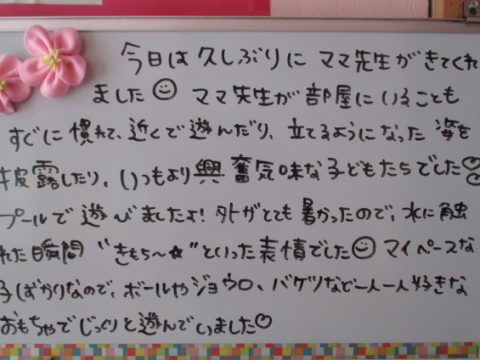 今日は久しぶりにママ先生がきてくれ
ました☺ ママ先生が部屋にいることも
すぐに慣れて、近くで遊んだり、立てるようになった姿を
披露したり、いつもより興奮気味な子どもたちでした☺
プールで遊びましたよ!外がとても暑かったので、水に触
れた瞬間 “きもち〜☆” といった表情でした☺ マイペースな
子ばかりなので、ボールやジョウロ、バケツなど一人一人好きな
おもちゃでじっくりと遊んでいました♡